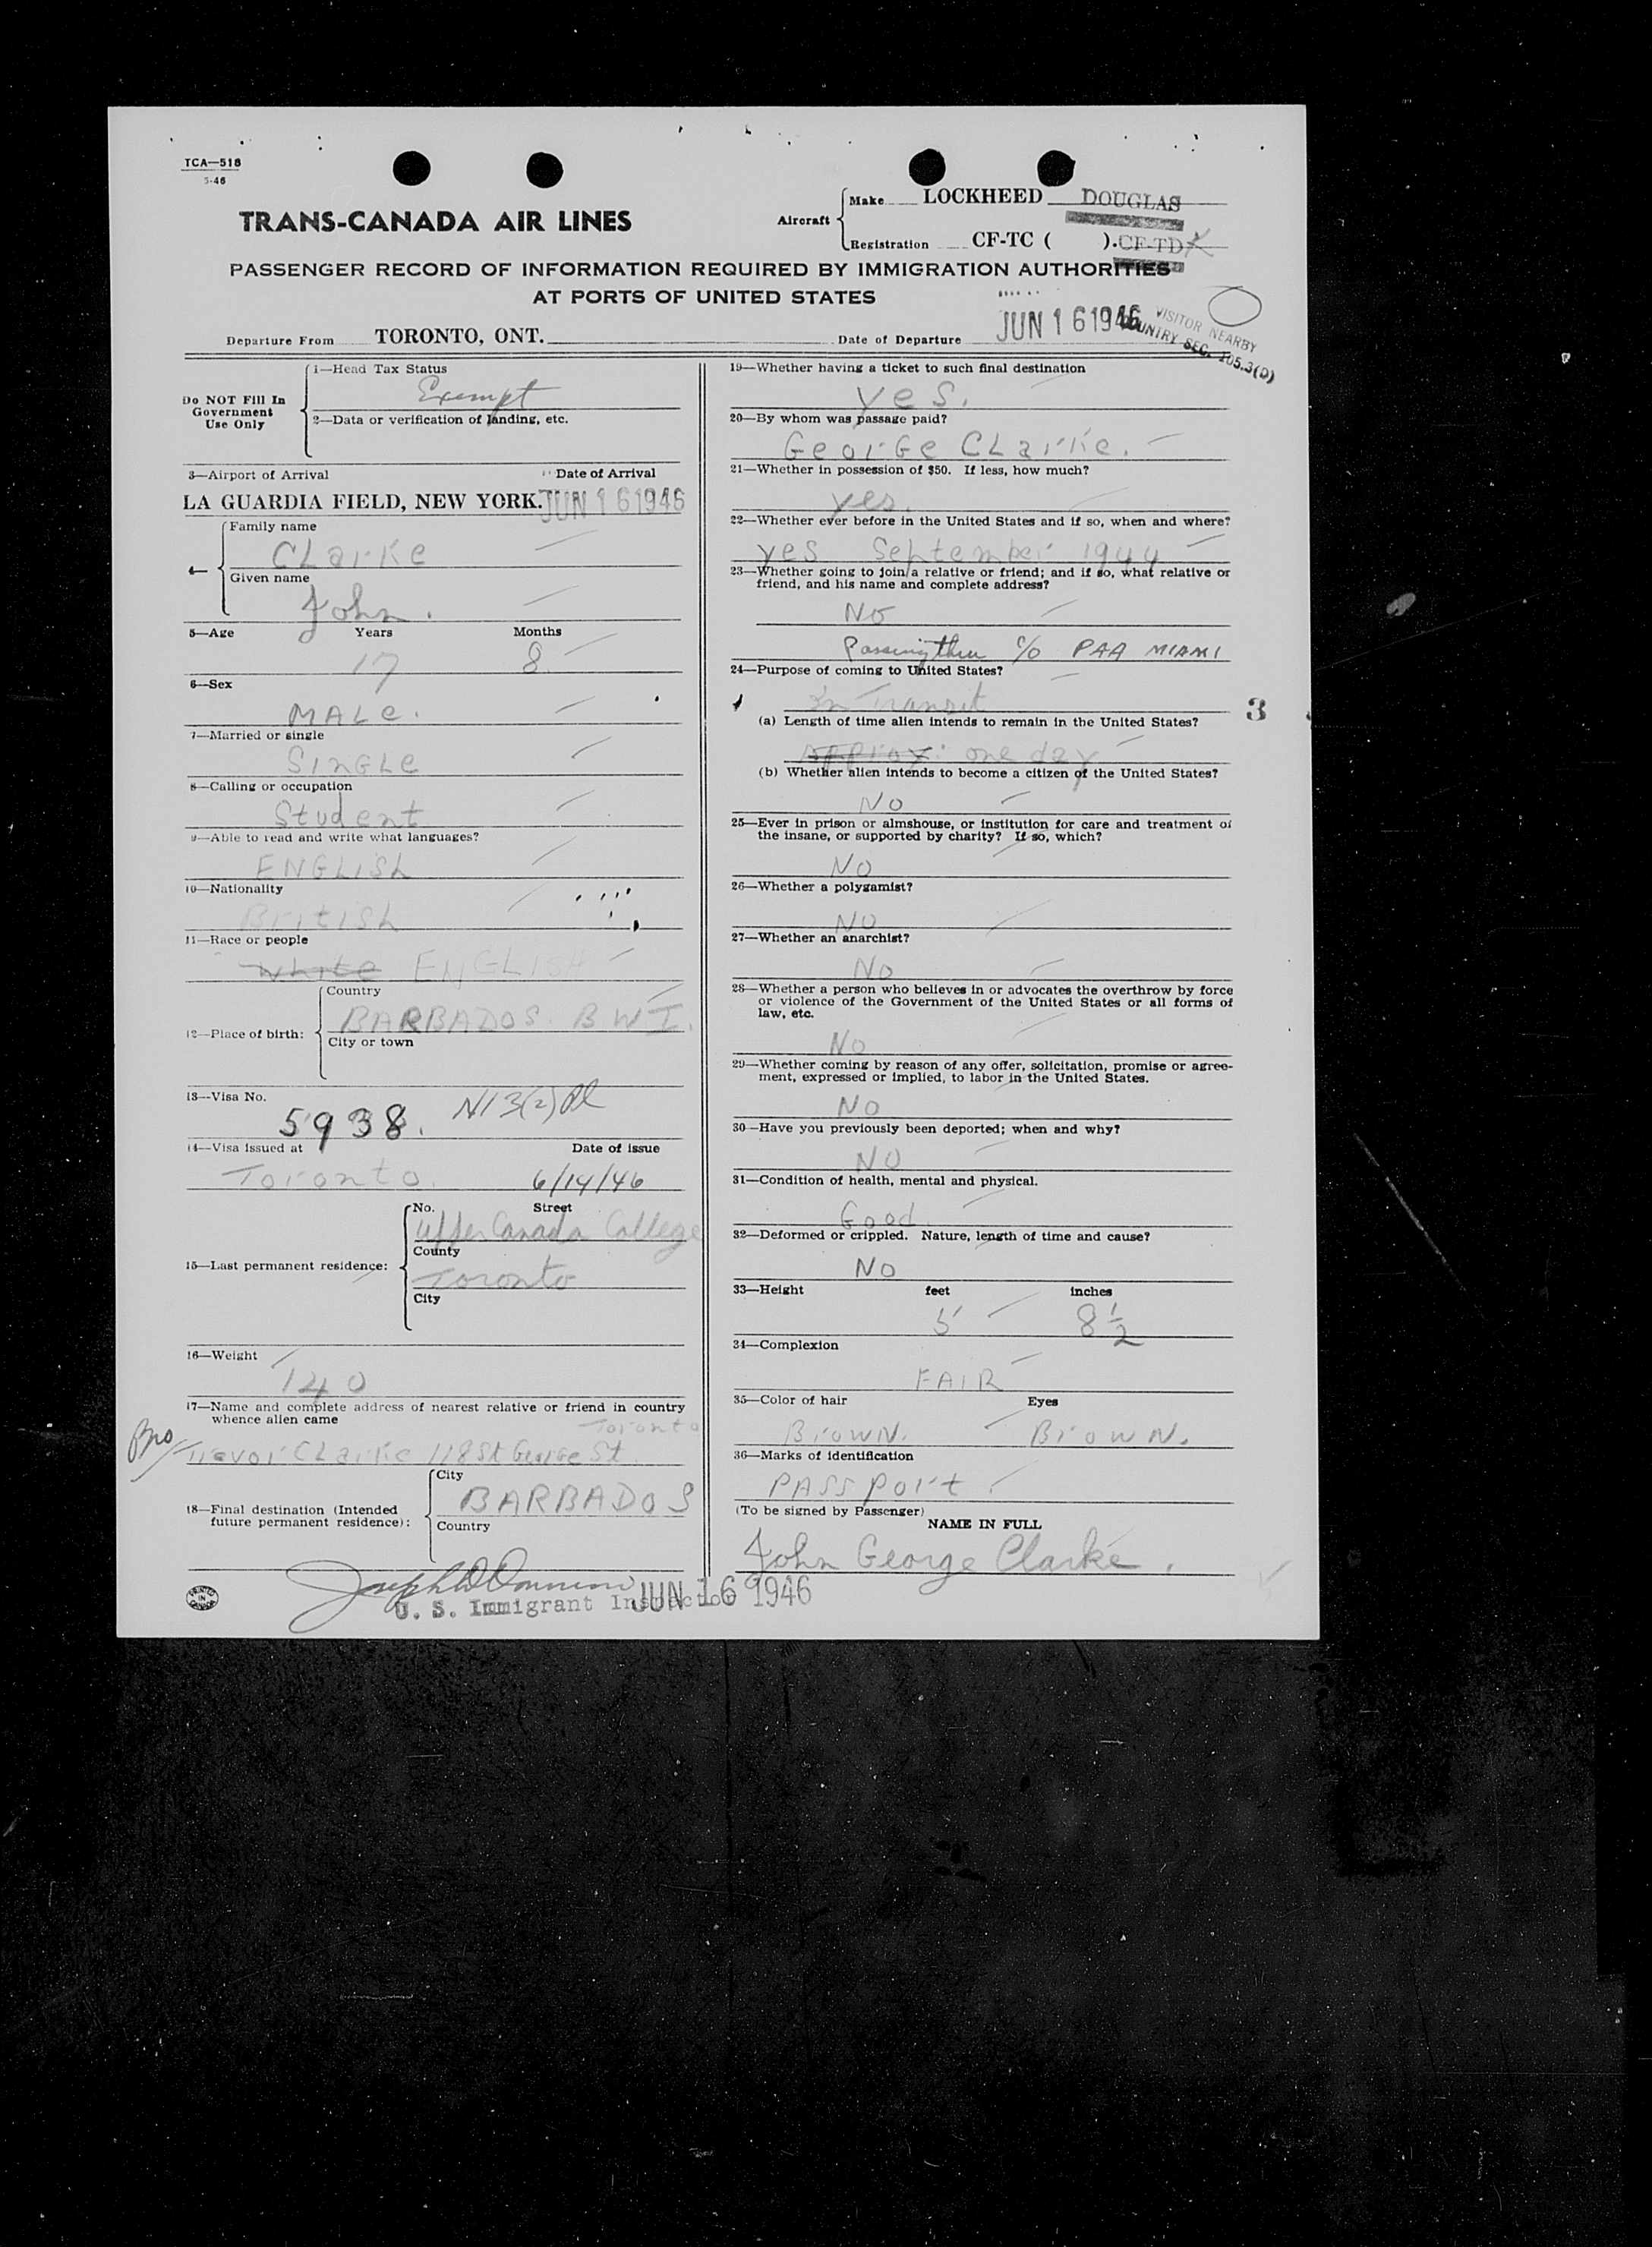 TCA—518
5-46
TRANS-CANADA AIR LINES
Aircraft
Make LOCKHEED DOUGLAS
Registration CF-TC ( ). CF-TDX
PASSENGER RECORD OF INFORMATION REQUIRED BY IMMIGRATION AUTHORITIES
AT PORTS OF UNITED STATES
Departure From TORONTO, ONT. Date of Departure JUN 16 1946
VISITOR NEARBY
COUNTRY SEC. 105.3(D)
Do NOT Fill In
Government
Use Only
1—Head Tax Status
Exempt
2—Data or verification of landing, etc.
3—Airport of Arrival Date of Arrival
LA GUARDIA FIELD, NEW YORK. JUN 16 1946
4—
Family name
Clarke
Given name
John.
5—Age Years Months
17 8
6—Sex
MALe.
7—Married or single
SINGLe
8—Calling or occupation
Student
9—Able to read and write what languages?
ENGLISh
10—Nationality
British
11—Race or people
White ENGLISH
12—Place of birth:
Country
BARBADOS. B W I.
City or town
13—Visa No.
5938. N13(2)
14—Visa issued at Date of issue
Toronto. 6/14/46
15—Last permanent residence:
No. Street
Upper Canada College
County
Toronto
City
16—Weight
140
17—Name and complete address of nearest relative or friend in country
whence alien came
Toronto
Bro/ Trevor Clarke 118 St George St.
18—Final destination (Intended
future permanent residence):
City
BARBADOS
Country
U. S. Immigrant Inspector JUN 16 1946
PRINTED
IN
CANADA
19—Whether having a ticket to such final destination
yes.
20—By whom was passage paid?
George Clarke.
21—Whether in possession of $50. If less, how much?
yes.
22—Whether ever before in the United States and if so, when and where?
yes September 1944
23—Whether going to join a relative or friend; and if so, what relative or
friend, and his name and complete address?
No
Passing thru c/o PAA MIAMI
24—Purpose of coming to United States?
In Transit
3
(a) Length of time alien intends to remain in the United States?
Approx: one day
(b) Whether alien intends to become a citizen of the United States?
No
25—Ever in prison or almshouse, or institution for care and treatment of
the insane, or supported by charity? If so, which?
No
26—Whether a polygamist?
No
27—Whether an anarchist?
No
28—Whether a person who believes in or advocates the overthrow by force
or violence of the Government of the United States or all forms of
law, etc.
No
29—Whether coming by reason of any offer, solicitation, promise or agree-
ment, expressed or implied, to labor in the United States.
No
30—Have you previously been deported; when and why?
No
31—Condition of health, mental and physical.
Good.
32—Deformed or crippled. Nature, length of time and cause?
No
33—Height feet inches
5' 8½
34—Complexion
FAIR
35—Color of hair Eyes
BrowN. BrowN.
36—Marks of identification
PASSport
(To be signed by Passenger)
NAME IN FULL
John George Clarke.